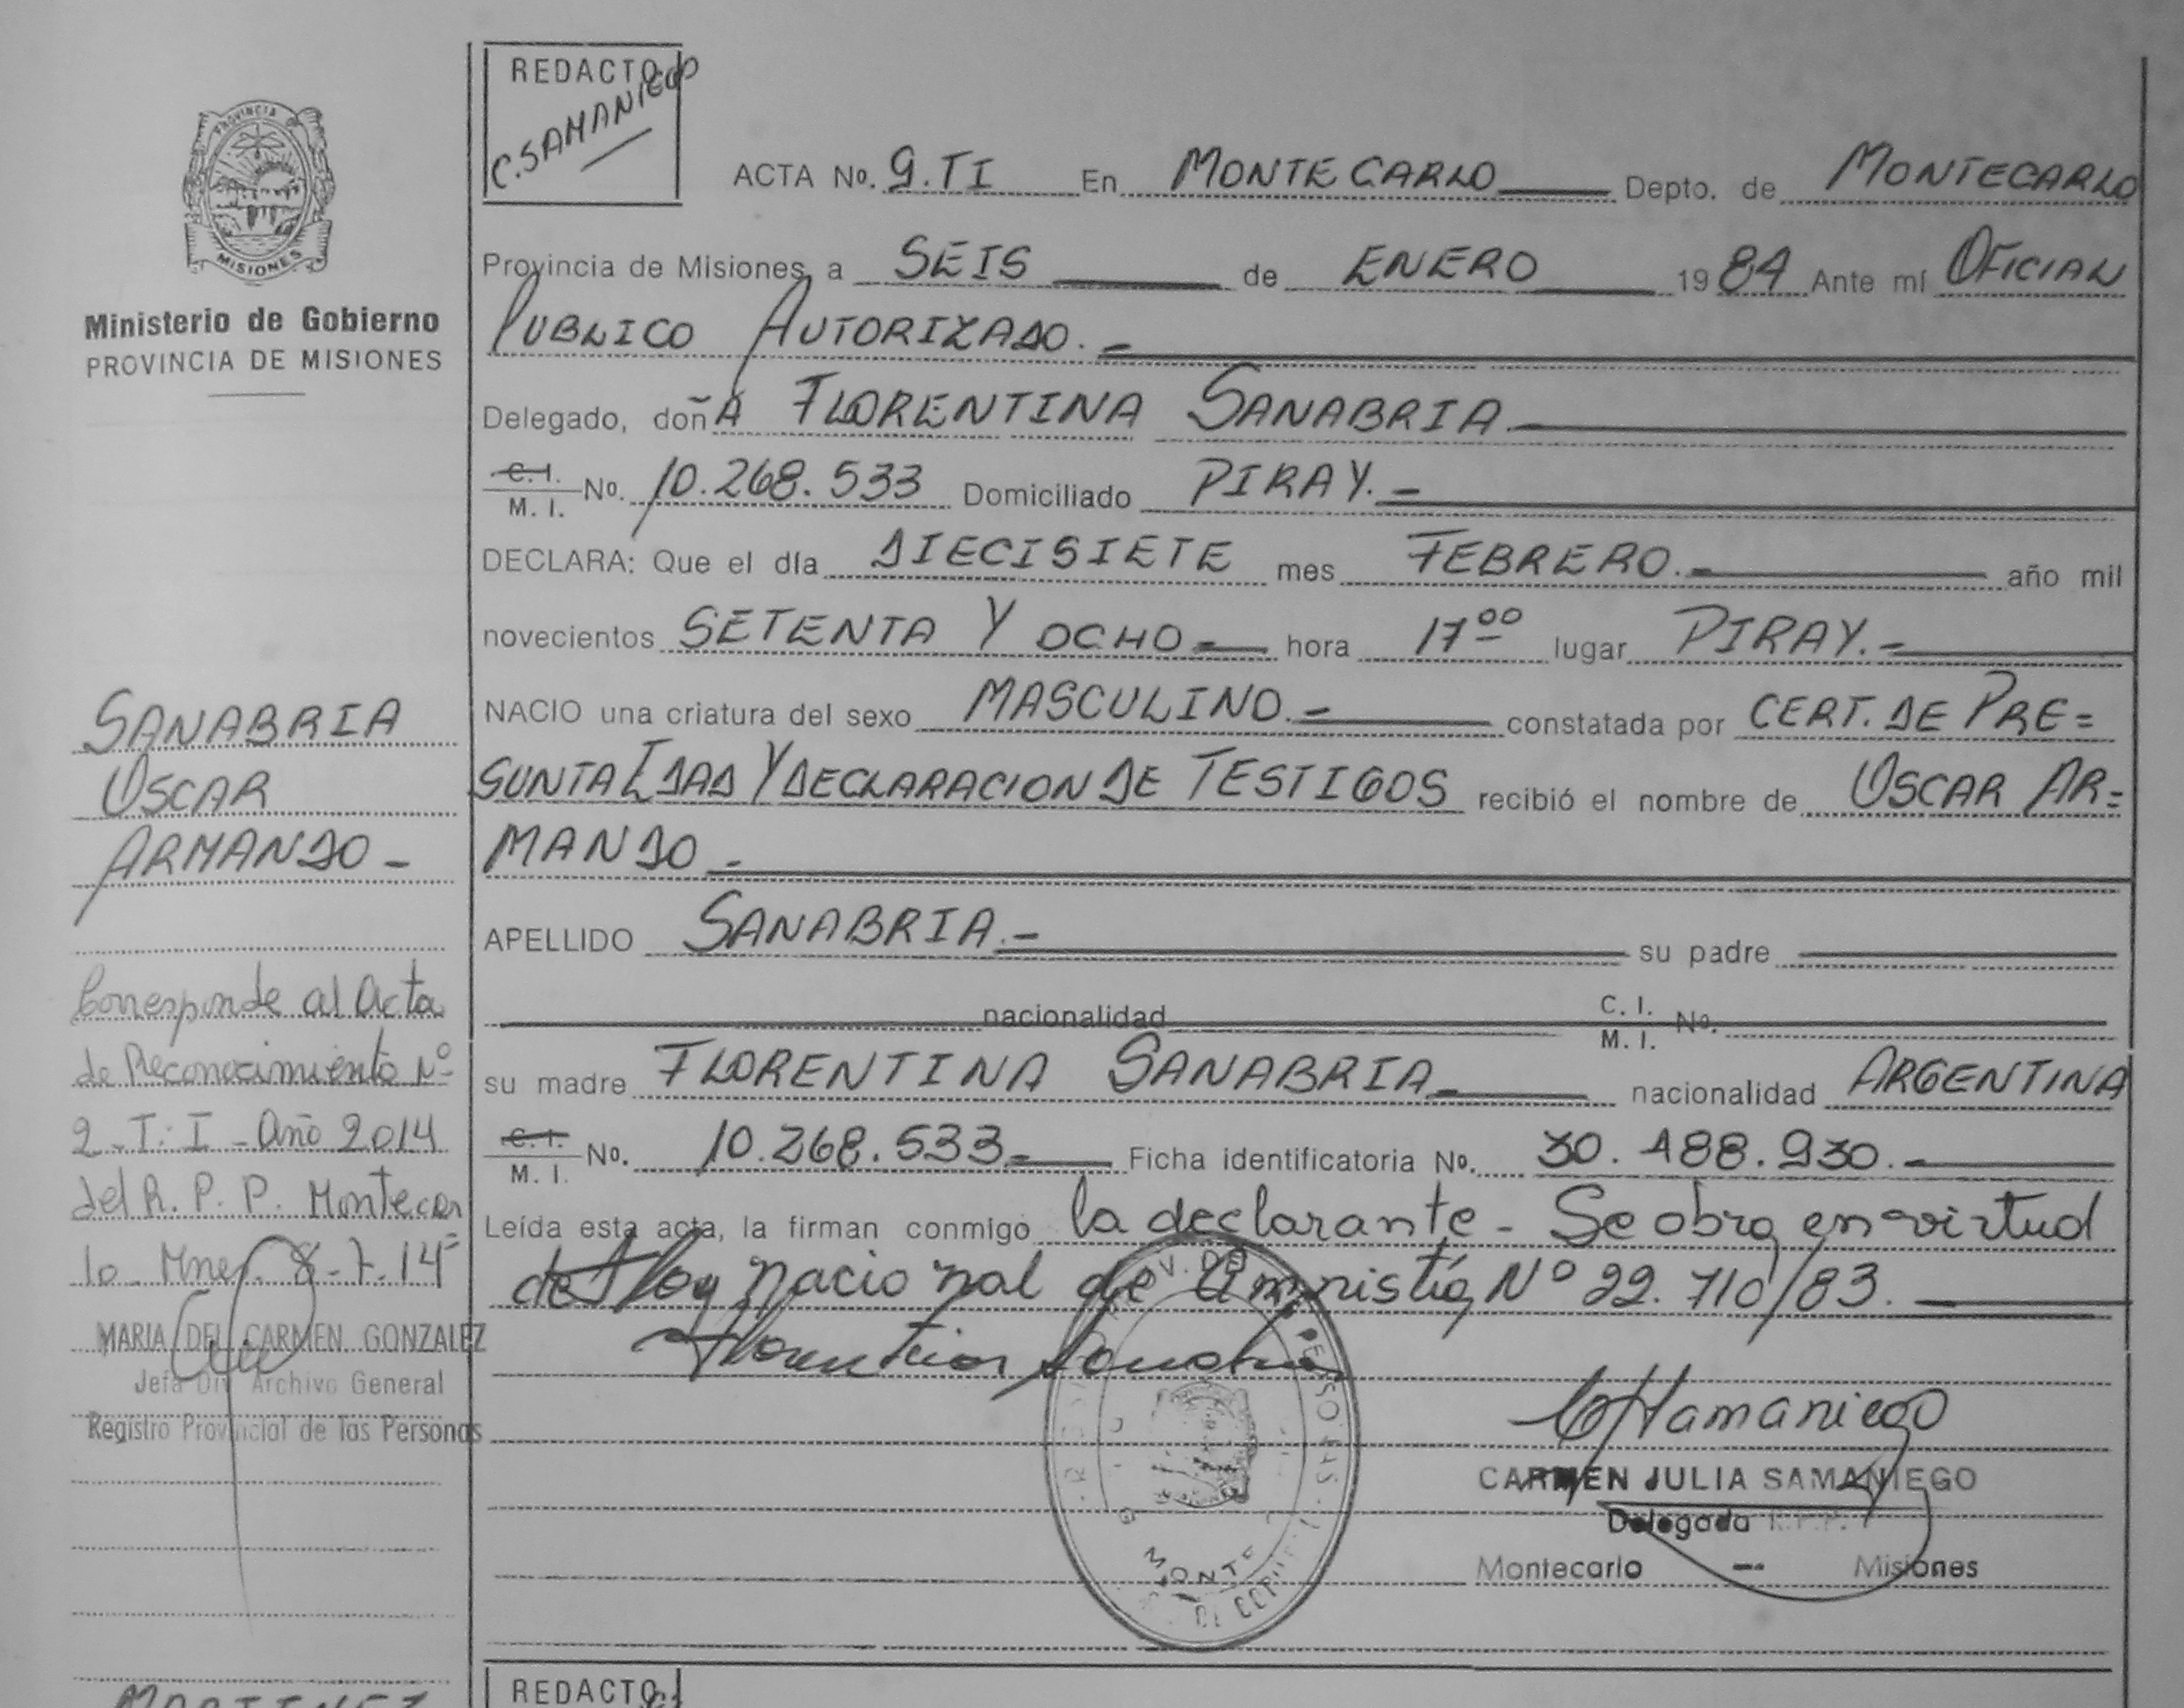 PROVINCIA DE
MISIONES
Ministerio de Gobierno
PROVINCIA DE MISIONES
SANABRIA
OSCAR
ARMANDO -
Corresponde al Acta
de Reconocimiento Nº
2 - T. I - Año 2014
del R. P. P. Montecar
lo. Mnes. 8-7.14
MARIA DEL CARMEN GONZALEZ
Jefa Div Archivo General
Registro Provincial de las Personas
REDACTO
C. SAMANIEGO
ACTA No. 9. TI En MONTECARLO Depto. de MONTECARLO
Provincia de Misiones, a SEIS de ENERO 1984 Ante mí OFICIAL
PUBLICO AUTORIZADO. -
Delegado, doñA FLORENTINA SANABRIA
C. I.
M. I. No. 10.268.533 Domiciliado PIRAY. -
DECLARA: Que el día DIECISIETE mes FEBRERO. - año mil
novecientos SETENTA Y OCHO - hora 17 00 lugar PIRAY. -
NACIO una criatura del sexo MASCULINO. - constatada por CERT. DE PRE=
SUNTA EDAD Y DECLARACION DE TESTIGOS recibió el nombre de OSCAR AR=
MANDO -
APELLIDO SANABRIA. - su padre
nacionalidad C. I. M. I. No.
su madre FLORENTINA SANABRIA - nacionalidad ARGENTINA
C. I.
M. I. No. 10.268.533 - Ficha identificatoria No. 30. 488. 930. -
Leída esta acta, la firman conmigo la declarante - Se obra en virtud
de ley nacional de amnistía Nº 22. 710/83.
Florentina Sanabria
CSamaniego
CARMEN JULIA SAMANIEGO
Delegada R.P.P.
Montecarlo — Misiones
MONTE
REDACTO
MARTINEZ